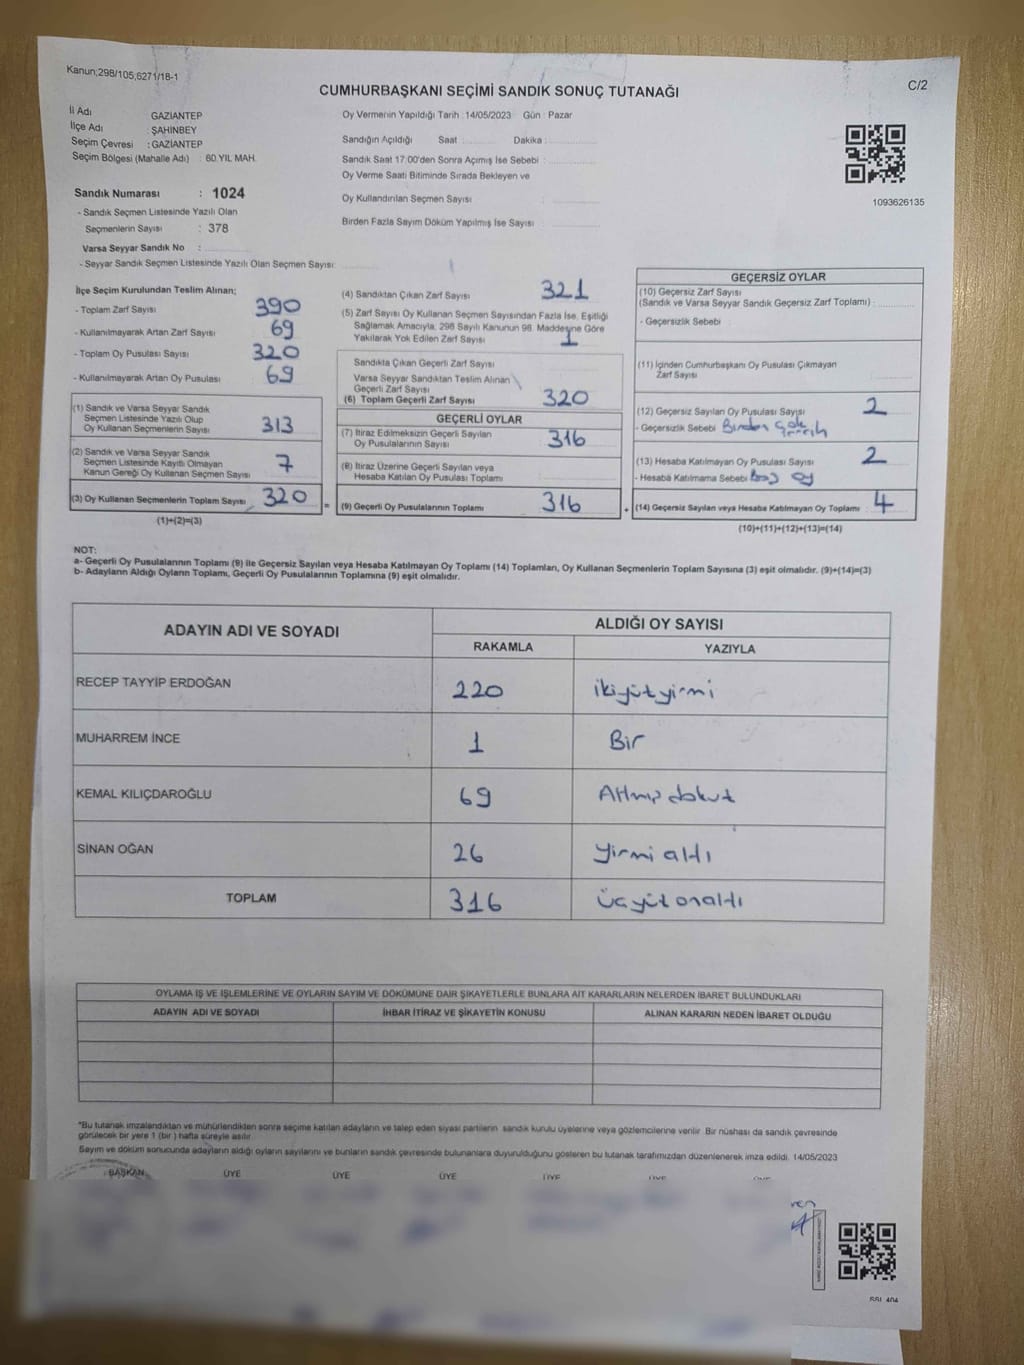 Kanun;298/105,6271/18-1
C/2
CUMHURBAŞKANI SEÇİMİ SANDIK SONUÇ TUTANAĞI
İl Adı GAZİANTEP
İlçe Adı : ŞAHİNBEY
Seçim Çevresi : GAZİANTEP
Seçim Bölgesi (Mahalle Adı) : 60.YIL MAH.
Sandık Numarası : 1024
- Sandık Seçmen Listesinde Yazılı Olan
Seçmenlerin Sayısı : 378
Varsa Seyyar Sandık No :
- Seyyar Sandık Seçmen Listesinde Yazılı Olan Seçmen Sayısı:
Oy Vermenin Yapıldığı Tarih :14/05/2023 Gün : Pazar
Sandığın Açıldığı Saat : Dakika :
Sandık Saat 17:00'den Sonra Açımış İse Sebebi :
Oy Verme Saati Bitiminde Sırada Bekleyen ve
Oy Kullandırılan Seçmen Sayısı :
Birden Fazla Sayım Döküm Yapılmış İse Sayısı :
1093626135
İlçe Seçim Kurulundan Teslim Alınan;
- Toplam Zarf Sayısı : 390
- Kullanılmayarak Artan Zarf Sayısı : 69
- Toplam Oy Pusulası Sayısı : 320
- Kullanılmayarak Artan Oy Pusulası : 69
(1) Sandık ve Varsa Seyyar Sandık
Seçmen Listesinde Yazılı Olup
Oy Kullanan Seçmenlerin Sayısı : 313
(2) Sandık ve Varsa Seyyar Sandık
Seçmen Listesinde Kayıtlı Olmayan
Kanun Gereği Oy Kullanan Seçmen Sayısı : 7
(3) Oy Kullanan Seçmenlerin Toplam Sayısı : 320 =
(1)+(2)=(3)
(4) Sandıktan Çıkan Zarf Sayısı : 321
(5) Zarf Sayısı Oy Kullanan Seçmen Sayısından Fazla İse, Eşitliği
Sağlamak Amacıyla, 298 Sayılı Kanunun 98. Maddesine Göre
Yakılarak Yok Edilen Zarf Sayısı : 1
Sandıkta Çıkan Geçerli Zarf Sayısı :
Varsa Seyyar Sandıktan Teslim Alınan
Geçerli Zarf Sayısı :
(6) Toplam Geçerli Zarf Sayısı : 320
GEÇERLİ OYLAR
(7) İtiraz Edilmeksizin Geçerli Sayılan
Oy Pusulalarının Sayısı : 316
(8) İtiraz Üzerine Geçerli Sayılan veya
Hesaba Katılan Oy Pusulası Toplamı :
(9) Geçerli Oy Pusulalarının Toplamı : 316 +
GEÇERSİZ OYLAR
(10) Geçersiz Zarf Sayısı
(Sandık ve Varsa Seyyar Sandık Geçersiz Zarf Toplamı) :
- Geçersizlik Sebebi :
(11) İçinden Cumhurbaşkanı Oy Pusulası Çıkmayan
Zarf Sayısı :
(12) Geçersiz Sayılan Oy Pusulası Sayısı : 2
- Geçersizlik Sebebi : Birden çok tercih
(13) Hesaba Katılmayan Oy Pusulası Sayısı : 2
- Hesaba Katılmama Sebebi : Boş oy
(14) Geçersiz Sayılan veya Hesaba Katılmayan Oy Toplamı : 4
(10)+(11)+(12)+(13)=(14)
NOT:
a- Geçerli Oy Pusulalarının Toplamı (9) ile Geçersiz Sayılan veya Hesaba Katılmayan Oy Toplamı (14) Toplamları, Oy Kullanan Seçmenlerin Toplam Sayısına (3) eşit olmalıdır. (9)+(14)=(3)
b- Adayların Aldığı Oyların Toplamı, Geçerli Oy Pusulalarının Toplamına (9) eşit olmalıdır.
ADAYIN ADI VE SOYADI
ALDIĞI OY SAYISI
RAKAMLA YAZIYLA
RECEP TAYYİP ERDOĞAN 220 ikiyüzyirmi
MUHARREM İNCE 1 Bir
KEMAL KILIÇDAROĞLU 69 Altmış dokuz
SİNAN OĞAN 26 yirmi altı
TOPLAM 316 üçyüz onaltı
OYLAMA İŞ VE İŞLEMLERİNE VE OYLARIN SAYIM VE DÖKÜMÜNE DAİR ŞİKAYETLERLE BUNLARA AİT KARARLARIN NELERDEN İBARET BULUNDUKLARI
ADAYIN ADI VE SOYADI İHBAR İTİRAZ VE ŞİKAYETİN KONUSU ALINAN KARARIN NEDEN İBARET OLDUĞU
"Bu tutanak imzalandıktan ve mühürlendikten sonra seçime katılan adayların ve talep eden siyasi partilerin sandık kurulu üyelerine veya gözlemcilerine verilir. Bir nüshası da sandık çevresinde
görülecek bir yere 1 (bir) hafta süreyle asılır.
Sayım ve döküm sonucunda adayların aldığı oyların sayılarını ve bunların sandık çevresinde bulunanlara duyurulduğunu gösteren bu tutanak tarafımızdan düzenlenerek imza edildi. 14/05/2023
BAŞKAN ÜYE ÜYE ÜYE ÜYE ÜYE ÜYE